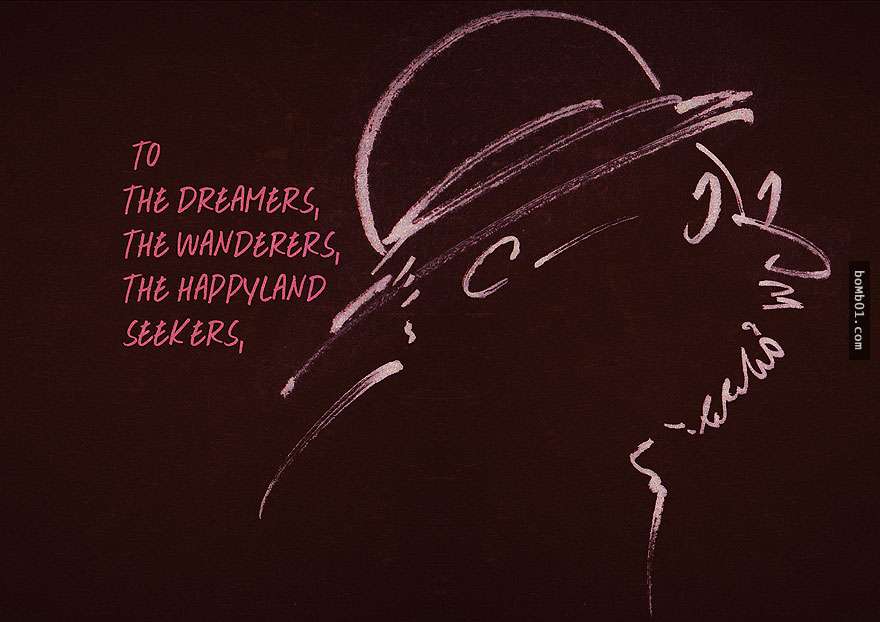 TO
THE DREAMERS,
THE WANDERERS,
THE HAPPYLAND
SEEKERS,
boMb01.com